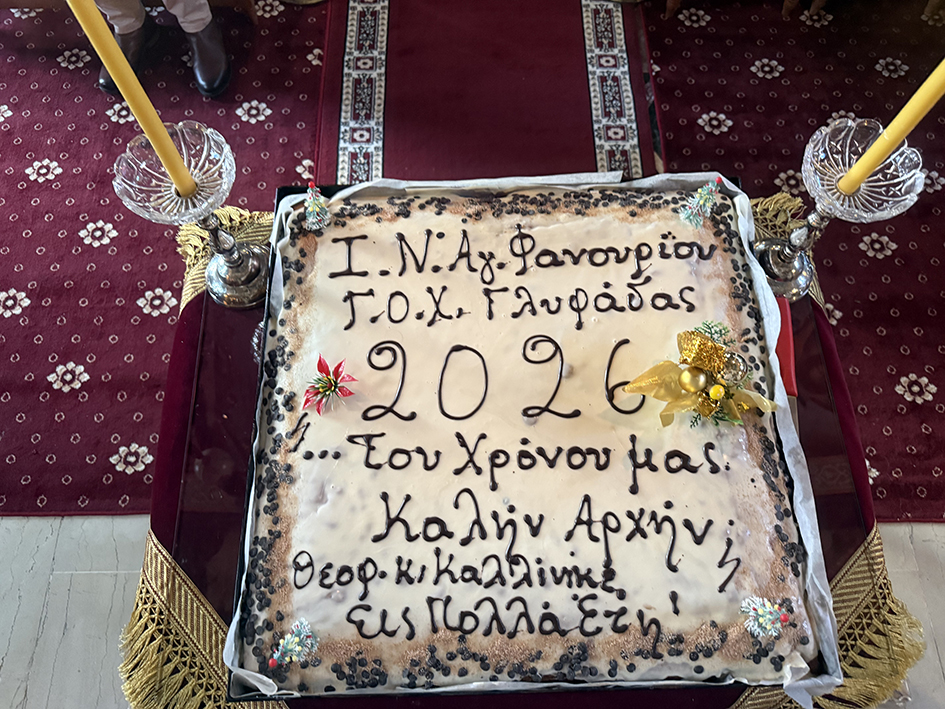 Ι.Ν. Αγ. Φανουρίου
Γ.Ο.Χ. Γλυφάδας
2026
"... Του Χρόνου μας
Καλήν Αρχήν ; "
Θεοφ. κ. Καλλίνικε
Εις Πολλά Έτη!